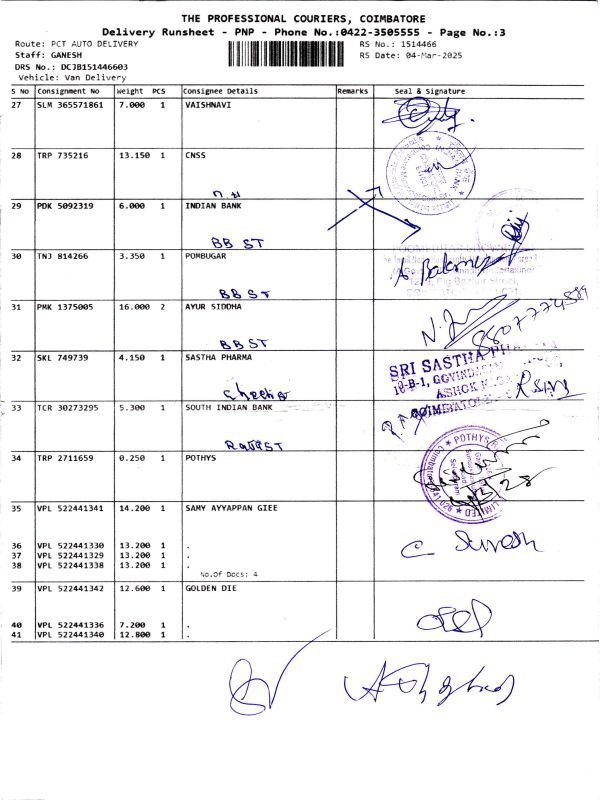 THE PROFESSIONAL COURIERS, COIMBATORE
Delivery Runsheet - PNP - Phone No.:0422-3505555 - Page No.:3
Route: PCT AUTO DELIVERY RS No.: 1514466
Staff: GANESH RS Date: 04-Mar-2025
DRS No.: DCJB151446603
Vehicle: Van Delivery
S No Consignment No Weight PCS Consignee Details Remarks Seal & Signature
27 SLM 365571861 7.000 1 VAISHNAVI
28 TRP 735216 13.150 1 CNSS
29 PDK 5092319 6.000 1 INDIAN BANK
BB ST
30 TNJ 814266 3.350 1 POMBUGAR
BB ST
31 PMK 1375005 16.000 2 AYUR SIDDHA
8807774589
BB ST
32 SKL 749739 4.150 1 SASTHA PHARMA
SRI SASTHA
33 TCR 30273295 5.300 1 SOUTH INDIAN BANK
34 TRP 2711659 0.250 1 POTHYS
POTHYS
LIMITED
35 VPL 522441341 14.200 1 SAMY AYYAPPAN GIEE
36 VPL 522441330 13.200 1 .
37 VPL 522441329 13.200 1 .
38 VPL 522441338 13.200 1 .
C Suresh
No.Of Docs: 4
39 VPL 522441342 12.600 1 GOLDEN DIE
40 VPL 522441336 7.200 1 .
41 VPL 522441340 12.800 1 .